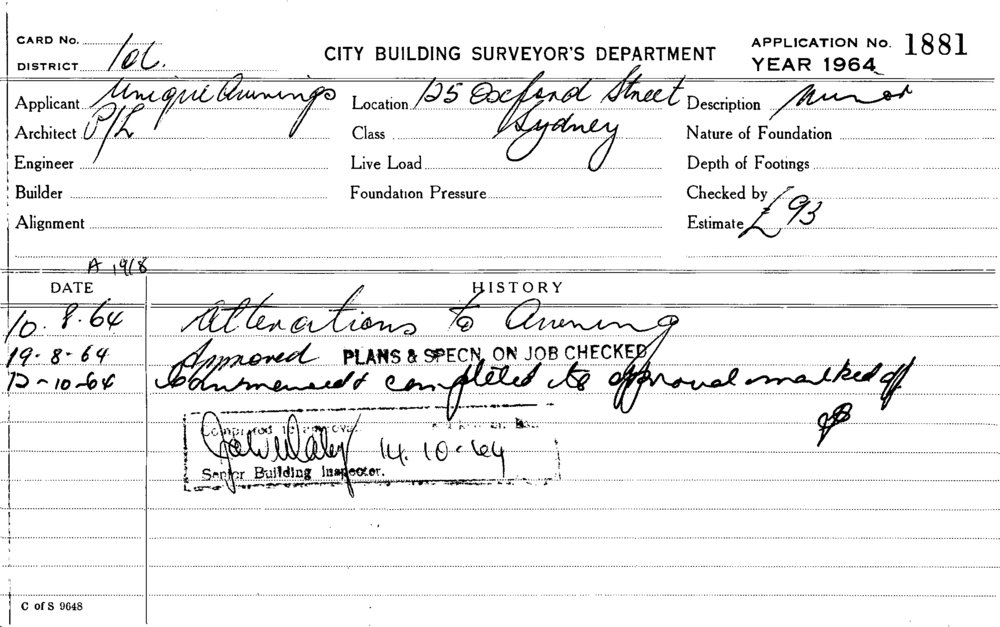 CARD No.
CITY BUILDING SURVEYOR'S DEPARTMENT
APPLICATION No. 1881
DISTRICT
YEAR 1964
Applicant Unique Awnings
Location 125 Oxford Street
Description Minor
Architect P/L
Class Sydney
Nature of Foundation
Engineer
Live Load
Depth of Footings
Builder
Foundation Pressure
Checked by
Alignment
Estimate £93
A 1918
DATE
HISTORY
10.8.64 Alterations to Awning
19-8-64 Approved PLANS & SPECN. ON JOB CHECKED
12-10-64 Commenced & completed to approval marked off
14.10-64
Senior Building Inspector.
C of S 9648